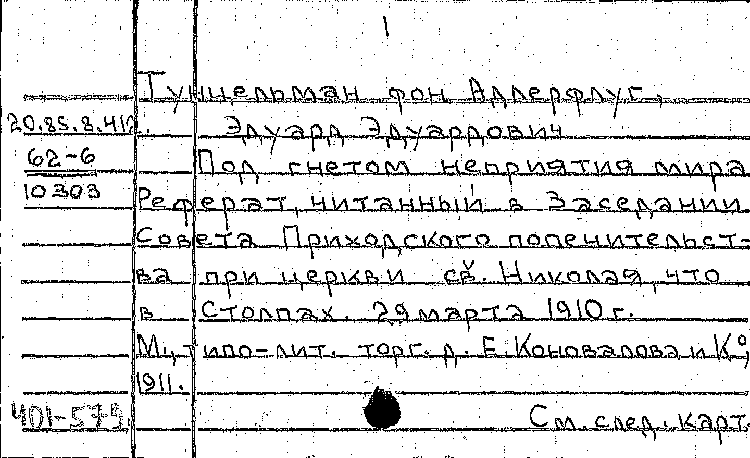 1
Туннельман фон Адлерфлуг,
20.85.8.412. Эдуард Эдуардович
62-6 Под гнетом неприятия мира
10303 Реферат, читанный в Заседании
Совета Приходского попечительст-
ва при церкви св. Николая, что
в Столпах. 29 марта 1910 г.
М., типо-лит. торг. д. Е. Коновалова и К°,
1911.
401-579. См. след. карт.